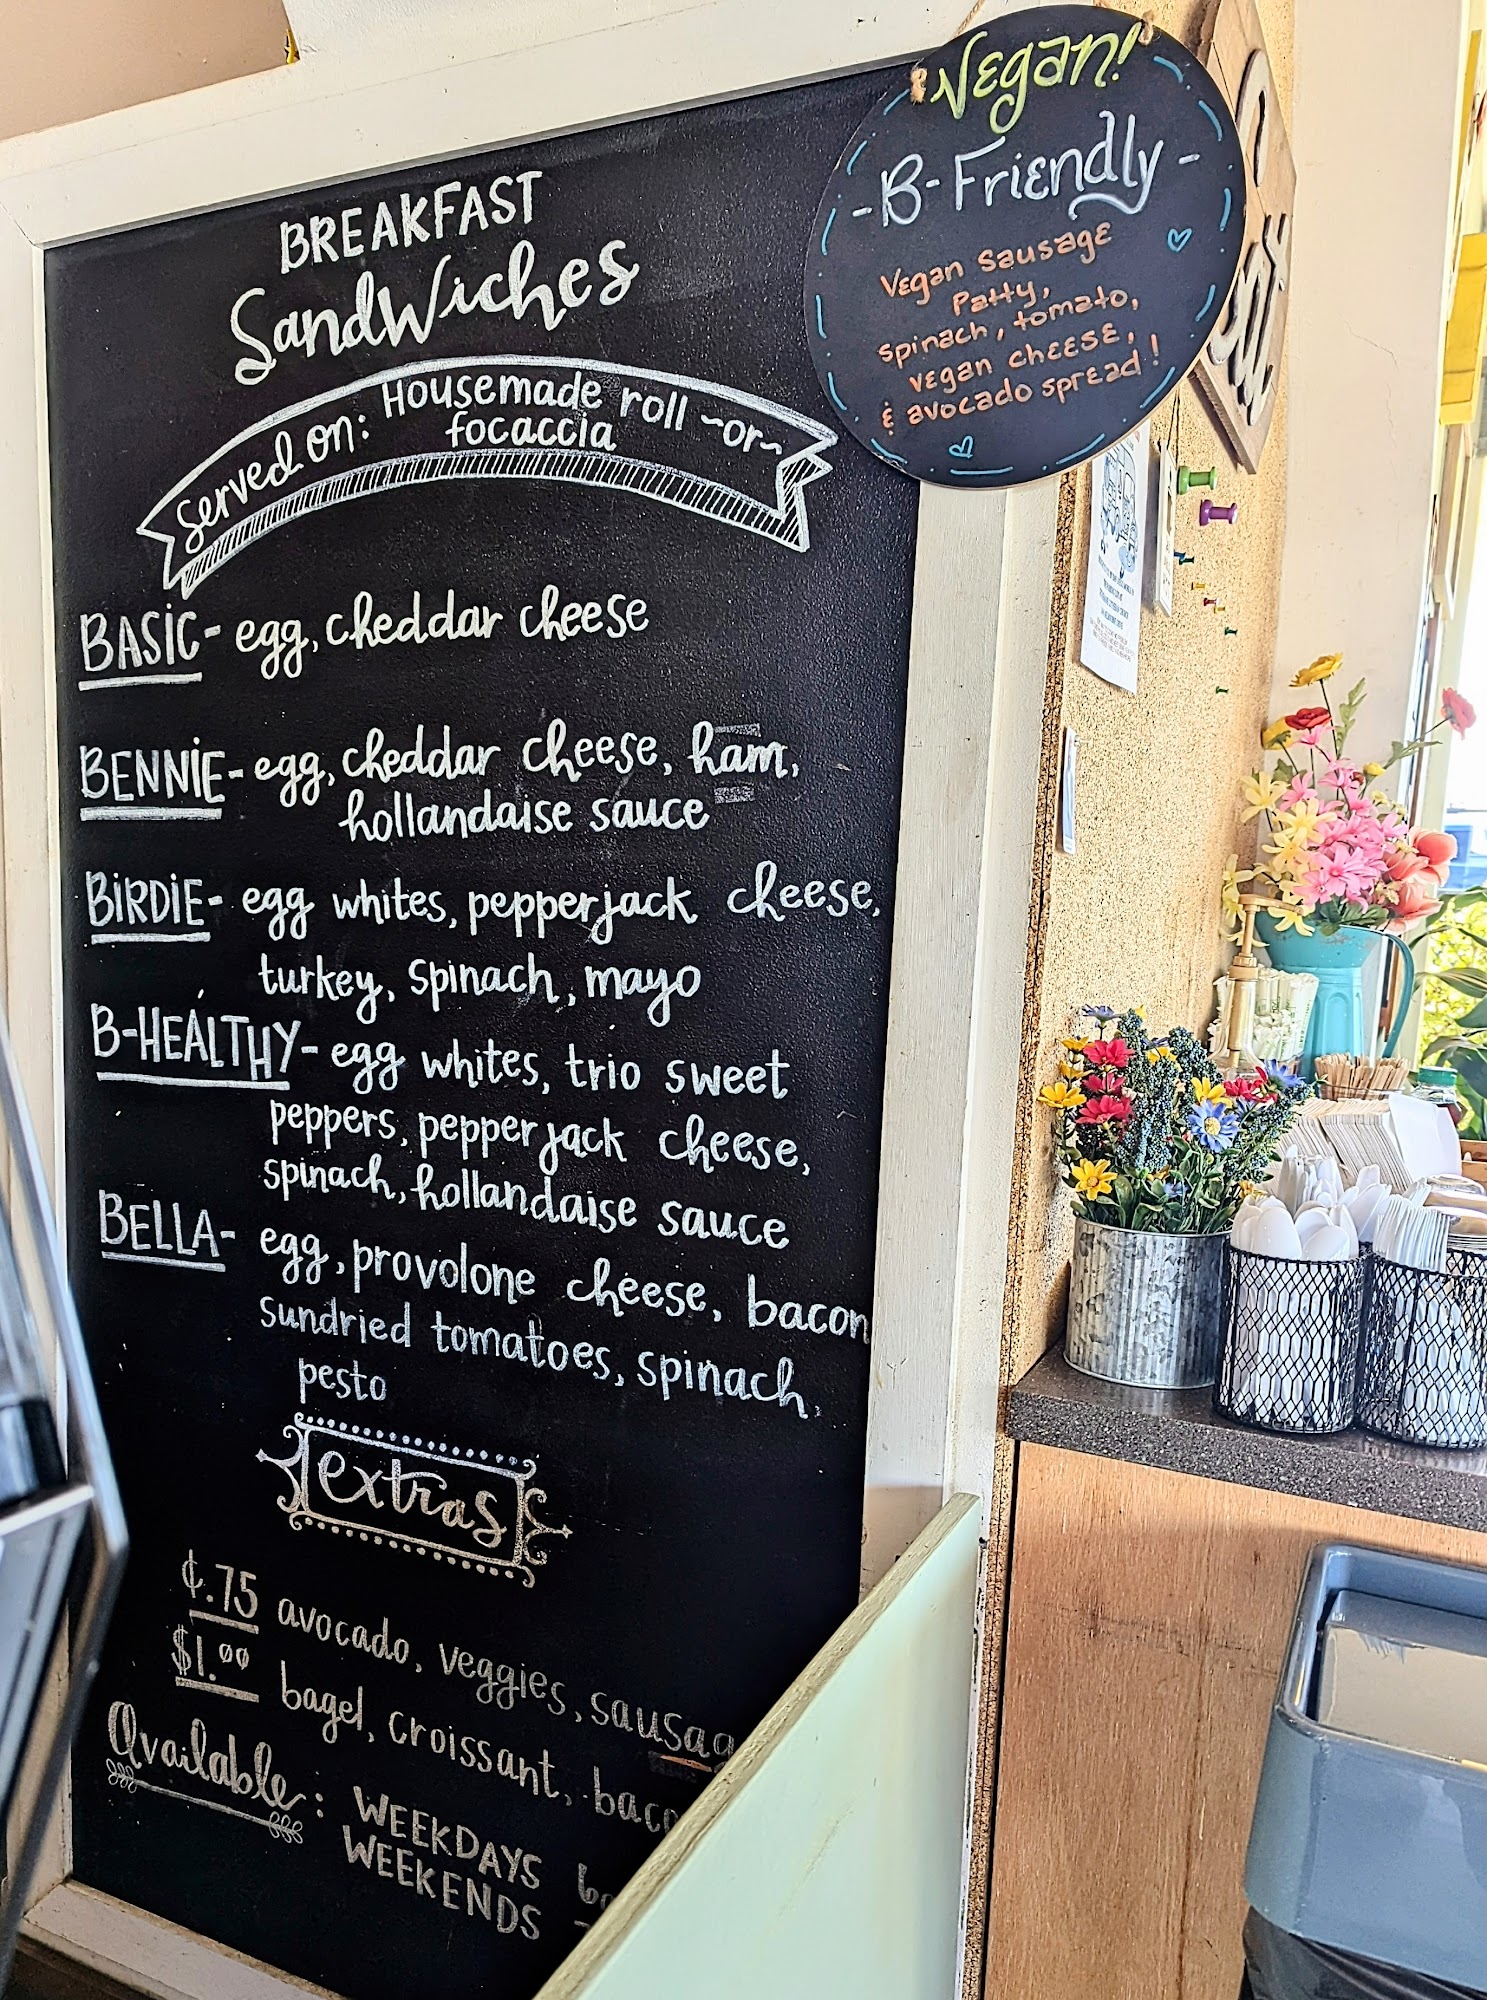 BREAKFAST
SandWiches
Served on: Housemade roll ~or~
focaccia
BASIC- egg, cheddar cheese
BENNIE- egg, cheddar cheese, ham,
hollandaise sauce
BIRDIE- egg whites, pepperjack cheese,
turkey, spinach, mayo
B-HEALTHY- egg whites, trio sweet
peppers, pepperjack cheese,
spinach, hollandaise sauce
BELLA- egg, provolone cheese, bacon
sundried tomatoes, spinach,
pesto
extras
¢.75 avocado, veggies, sausag
$1.00 bagel, croissant, baco
Available: WEEKDAYS
WEEKENDS
Vegan!
-B-Friendly-
Vegan Sausage
Patty,
spinach, tomato,
vegan cheese,
& avocado spread!